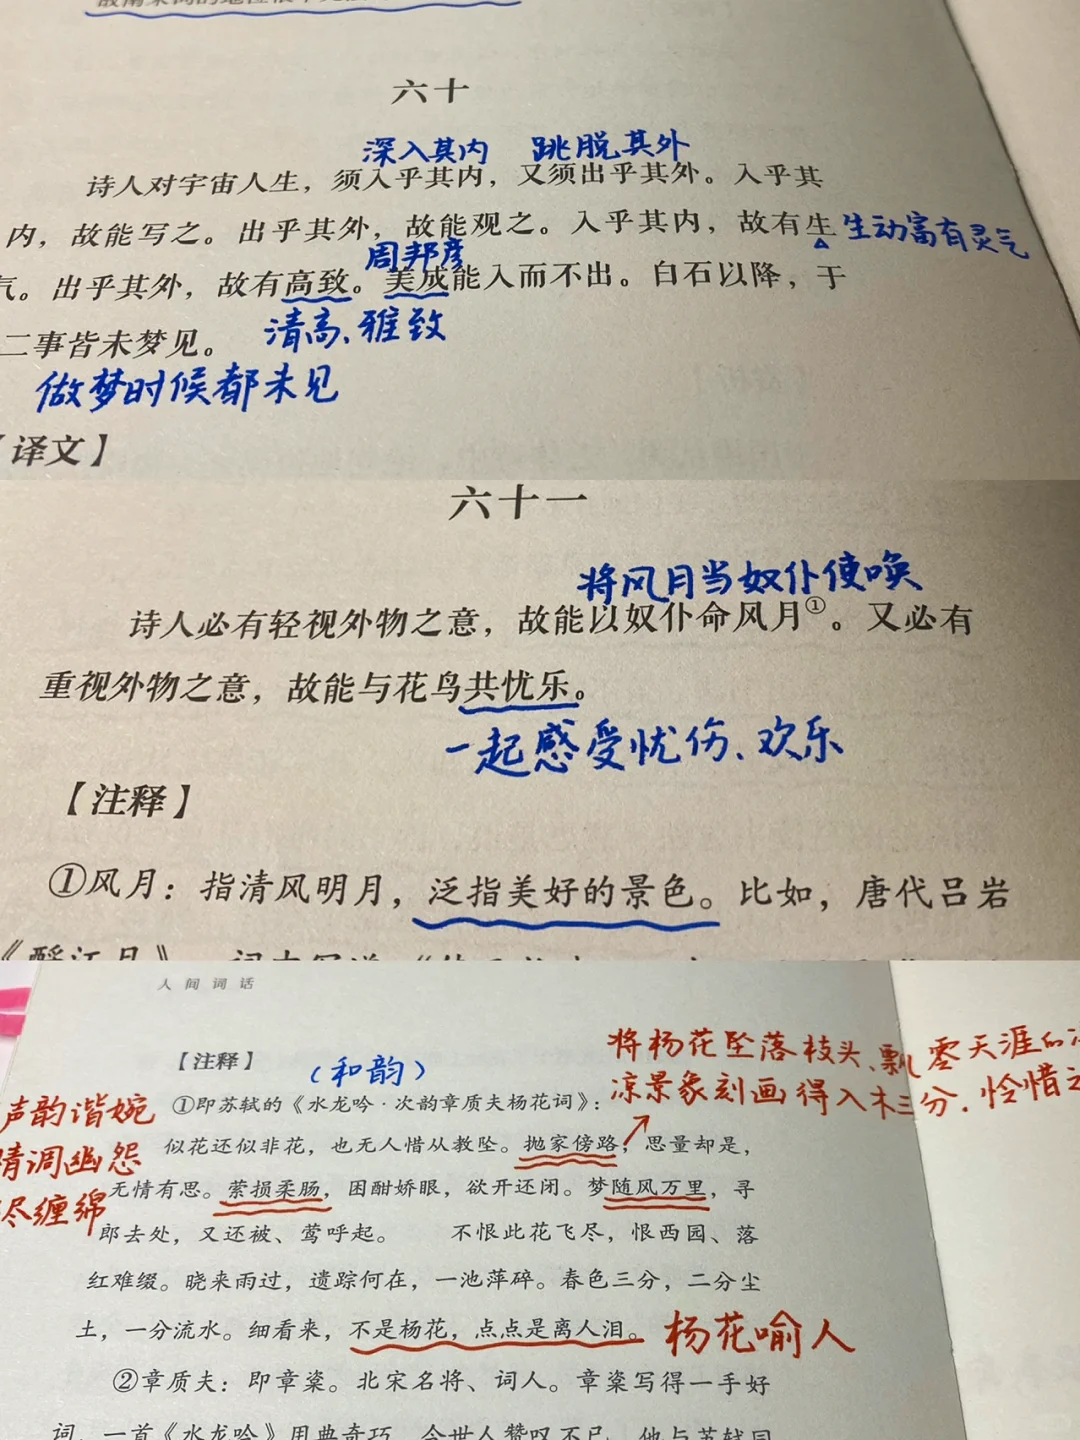 六十
深入其内 跳脱其外
诗人对宇宙人生，须入乎其内，又须出乎其外。入乎其
内，故能写之。出乎其外，故能观之。入乎其内，故有生
生动富有灵气
周邦彦
气。出乎其外，故有高致。美成能入而不出。白石以降，于
清高、雅致
二事皆未梦见。
做梦时候都未见
【译文】
六十一
将风月当奴仆使唤
诗人必有轻视外物之意，故能以奴仆命风月①。又必有
重视外物之意，故能与花鸟共忧乐。
一起感受忧伤、欢乐
【注释】
①风月：指清风明月，泛指美好的景色。比如，唐代吕岩
人间词话
【注释】
（和韵）
将杨花坠落枝头、飘零天涯的
凉景象刻画得入木三分，怜惜之
声韵谐婉
情调幽怨
尽缠绵
①即苏轼的《水龙吟·次韵章质夫杨花词》：
似花还似非花，也无人惜从教坠。抛家傍路，思量却是，
无情有思。萦损柔肠，困酣娇眼，欲开还闭。梦随风万里，寻
郎去处，又还被、莺呼起。 不恨此花飞尽，恨西园、落
红难缀。晓来雨过，遗踪何在，一池萍碎。春色三分，二分尘
土，一分流水。细看来，不是杨花，点点是离人泪。
杨花喻人
②章质夫：即章楶。北宋名将、词人。章楶写得一手好
词，一首《水龙吟》用典奇巧，令世人赞叹不已，他与苏轼同